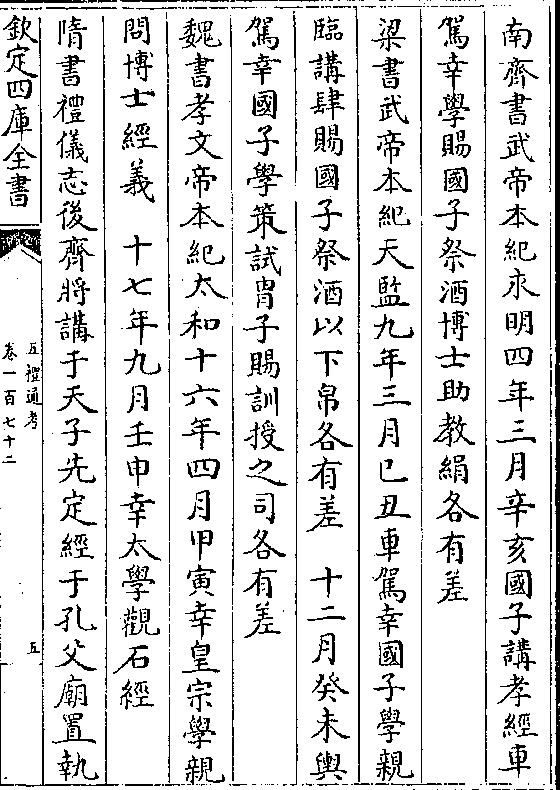 南齊書武帝本紀永明四年三月辛亥國子講孝經車
駕幸學賜國子祭酒博士助教絹各有差
梁書武帝本紀天監九年三月己丑車駕幸國子學親
臨講肆賜國子祭酒以下帛各有差　十二月癸未輿
駕幸國子學策試胄子賜訓授之司各有差
魏書孝文帝本紀太和十六年四月甲寅幸皇宗學親
問博士經義　十七年九月壬申幸太學觀石經
隋書禮儀志後齊將講于天子先定經于孔父廟置執
欽定四庫全書
五禮通考
卷一百七十二
五